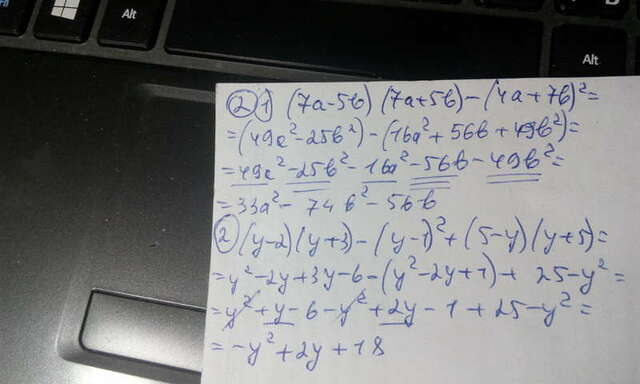 Alt
Alt
② 1) (7a-5b)(7a+5b)-(4a+7b)²=
=(49a²-25b²)-(16a²+56b+49b²)=
=49a²-25b²-16a²-56b-49b²=
=33a²-74b²-56b
② (y-2)(y+3)-(y-1)²+(5-y)(y+5)=
=y²-2y+3y-6-(y²-2y+1)+25-y²=
=y²+y-6-y²+2y-1+25-y²=
=-y²+2y+18